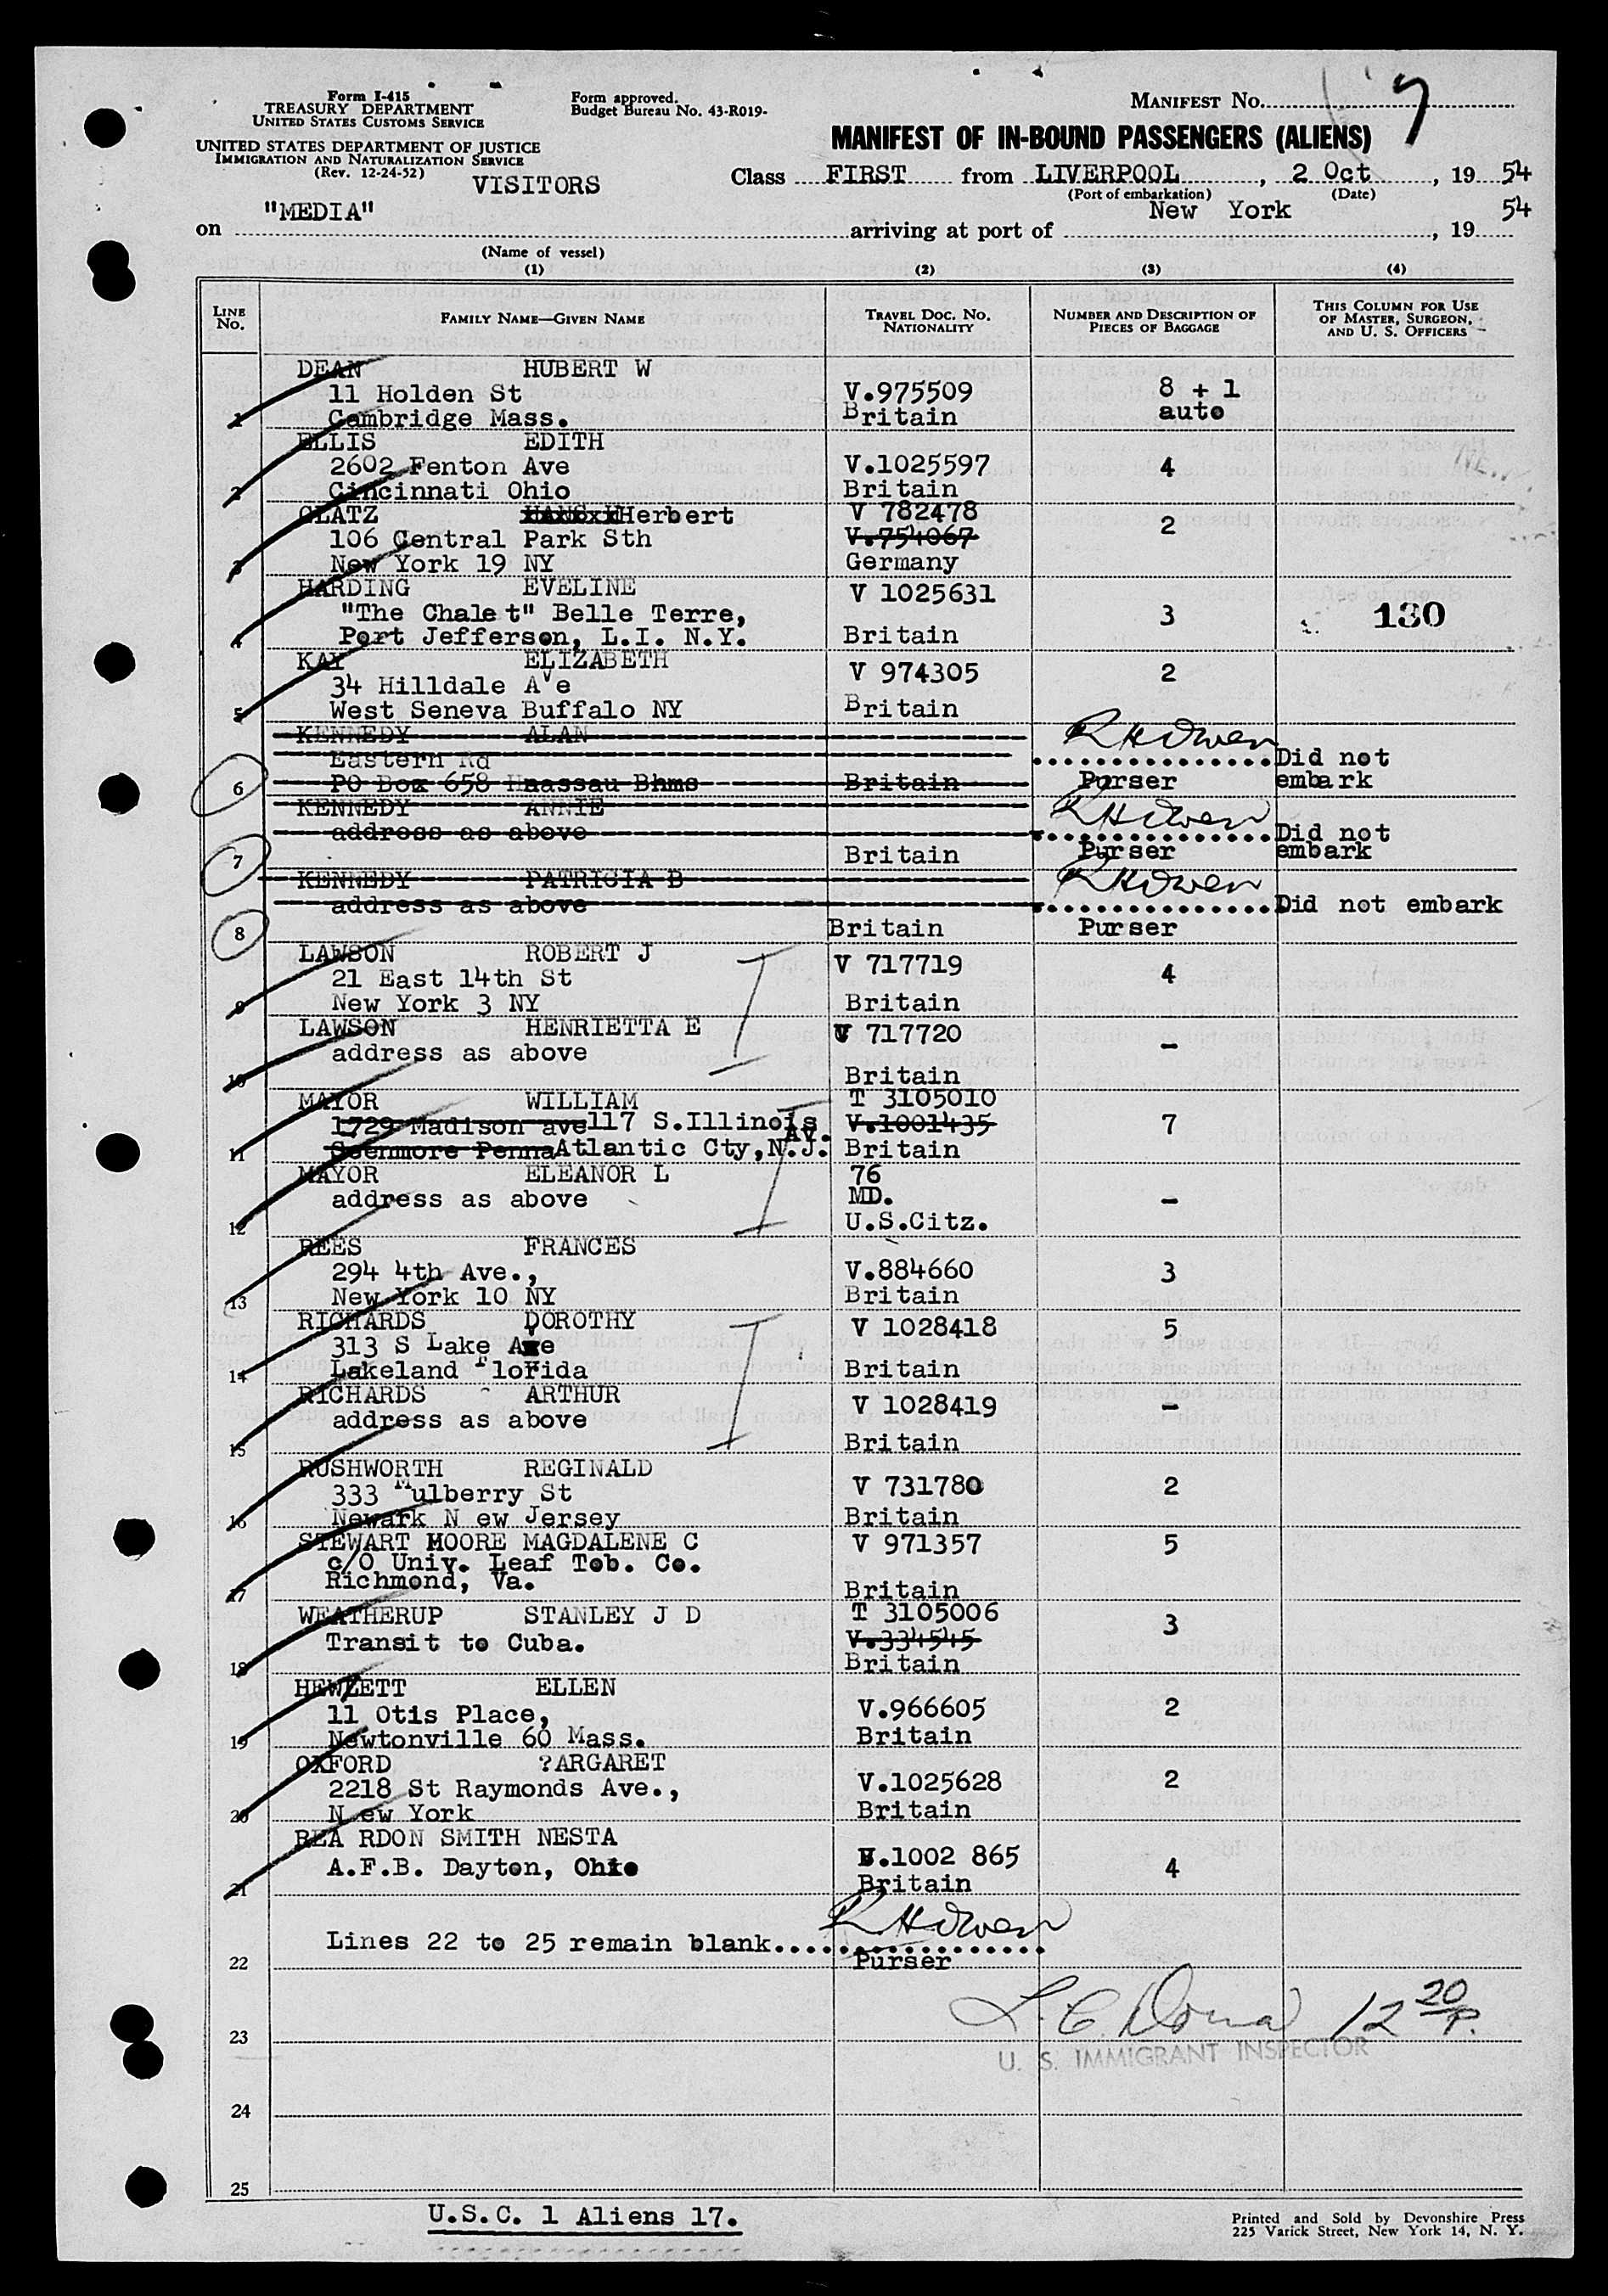 Form I-415
TREASURY DEPARTMENT
UNITED STATES CUSTOMS SERVICE
UNITED STATES DEPARTMENT OF JUSTICE
IMMIGRATION AND NATURALIZATION SERVICE
(Rev. 12-24-52)
VISITORS
Form approved.
Budget Bureau No. 43-R019-
MANIFEST NO. 7
MANIFEST OF IN-BOUND PASSENGERS (ALIENS)
Class FIRST from LIVERPOOL, 2 Oct, 19 54
(Port of embarkation) (Date)
on "MEDIA" arriving at port of New York, 19 54
(Name of vessel)
(1) (2) (3) (4)
LINE No. FAMILY NAME—GIVEN NAME TRAVEL DOC. NO. NATIONALITY NUMBER AND DESCRIPTION OF PIECES OF BAGGAGE THIS COLUMN FOR USE OF MASTER, SURGEON, AND U. S. OFFICERS
DEAN HUBERT W
11 Holden St V.975509 8 + 1
1 Cambridge Mass. Britain auto
ELLIS EDITH
2602 Fenton Ave V.1025597 4
2 Cincinnati Ohio Britain
GLATZ Herbert V 782478
106 Central Park Sth V.754067 2
3 New York 19 NY Germany
HARDING EVELINE V 1025631
"The Chale t" Belle Terre, 3 130
4 Port Jefferson, L.I. N.Y. Britain
KAY ELIZABETH V 974305 2
34 Hilldale Ave
5 West Seneva Buffalo NY Britain
KENNEDY ALAN RHOwen
Eastern Rd Did not
6 PO Box 658 Hnassau Bhms Britain Purser embark
KENNEDY ANNIE RHOwen
address as above Did not
7 Britain Purser embark
KENNEDY PATRICIA B RHOwen
address as above Did not embark
8 Britain Purser
LAWSON ROBERT J V 717719 4
21 East 14th St
9 New York 3 NY Britain
LAWSON HENRIETTA E V 717720
address as above -
10 Britain
MAYOR WILLIAM T 3105010
1729 Madison ave 117 S.Illinois Av. V.1001435 7
11 Penna Atlantic Cty,N.J. Britain
MAYOR ELEANOR L 76
address as above MD. -
12 U.S.Citz.
REES FRANCES
294 4th Ave., V.884660 3
13 New York 10 NY Britain
RICHARDS DOROTHY V 1028418 5
313 S Lake Ave
14 Lakeland Florida Britain
RICHARDS ARTHUR V 1028419 -
address as above
15 Britain
RUSHWORTH REGINALD V 731780 2
333 Mulberry St
16 Newark N ew Jersey Britain
STEWART MOORE MAGDALENE C V 971357 5
c/O Univ. Leaf Tob. Co.
17 Richmond, Va. Britain
WEATHERUP STANLEY J D T 3105006
Transit to Cuba. V.334545 3
18 Britain
HEWLETT ELLEN
11 Otis Place, V.966605 2
19 Newtonville 60 Mass. Britain
OXFORD ?ARGARET
2218 St Raymonds Ave., V.1025628 2
20 N ew York Britain
REA RDON SMITH NESTA
A.F.B. Dayton, Ohio V.1002 865 4
21 Britain
RHOwen
Lines 22 to 25 remain blank....
22 Purser
12 20 P.
23 U. S. IMMIGRANT INSPECTOR
24
25
U.S.C. 1 Aliens 17.
Printed and Sold by Devonshire Press
225 Varick Street, New York 14, N. Y.